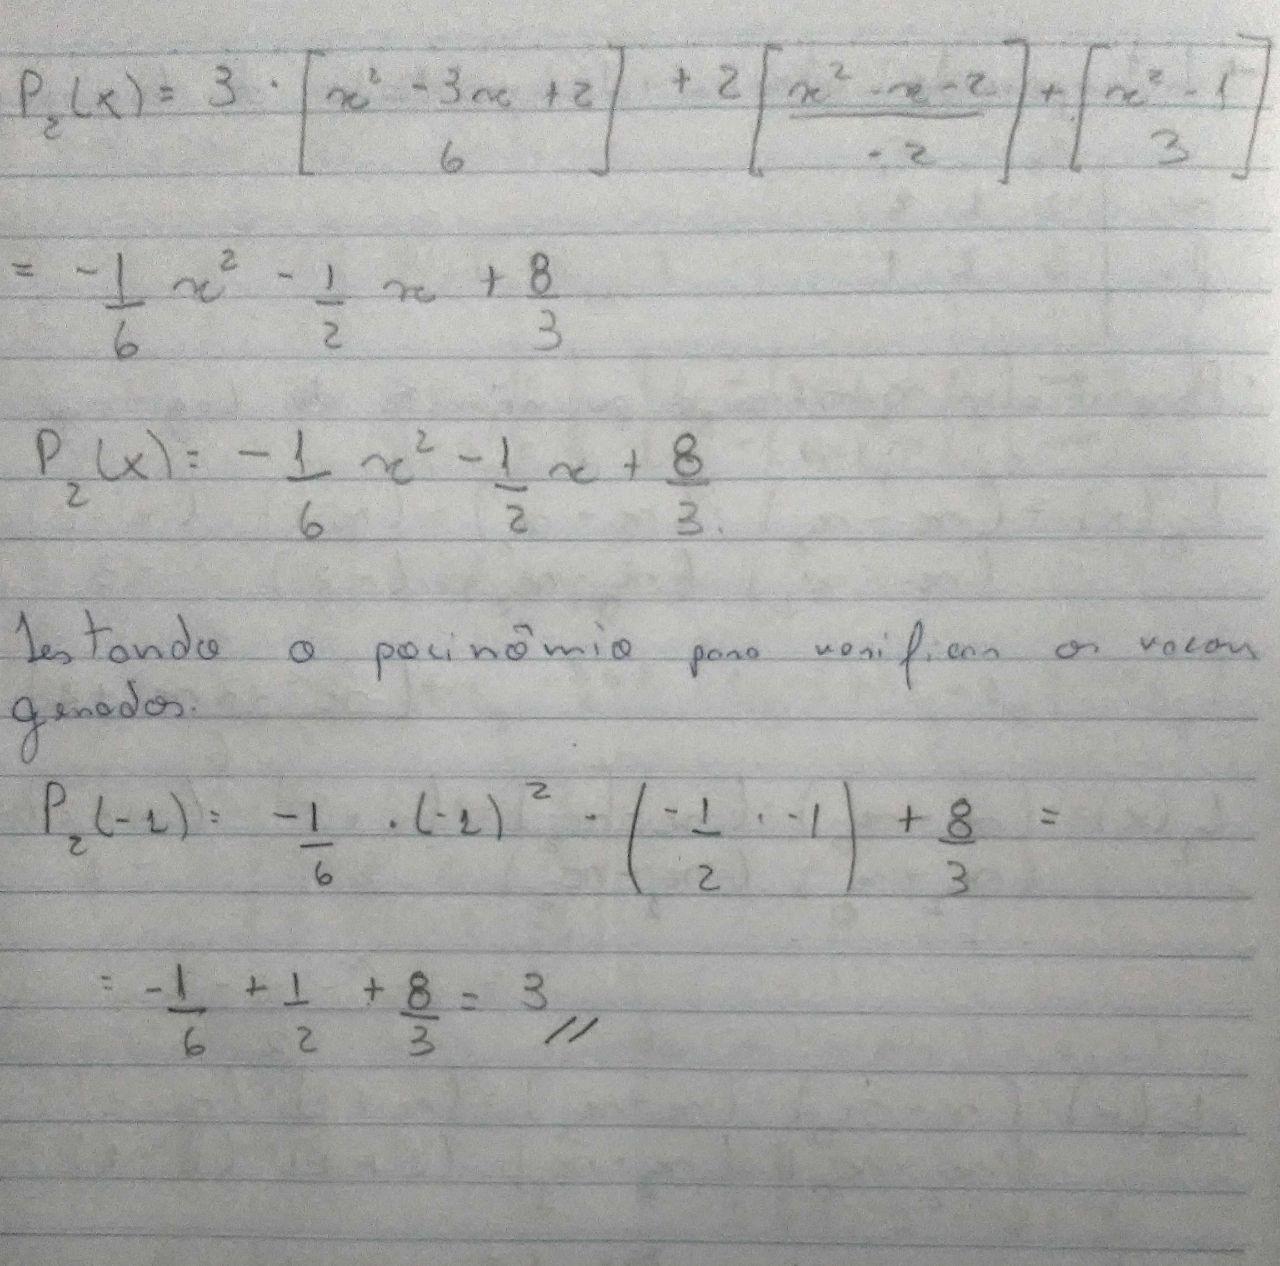 P₂(x) = 3 · [x² - 3x + 2 / 6] + 2 [x² - x - 2 / -2] + [x² - 1 / 3]
= -1/6 x² - 1/2 x + 8/3
P₂(x) = -1/6 x² - 1/2 x + 8/3.
Testando o polinômio para verificar os valores
gerados.
P₂(-1) = -1/6 · (-1)² - (-1/2 · -1) + 8/3 =
= -1/6 + 1/2 + 8/3 = 3 //